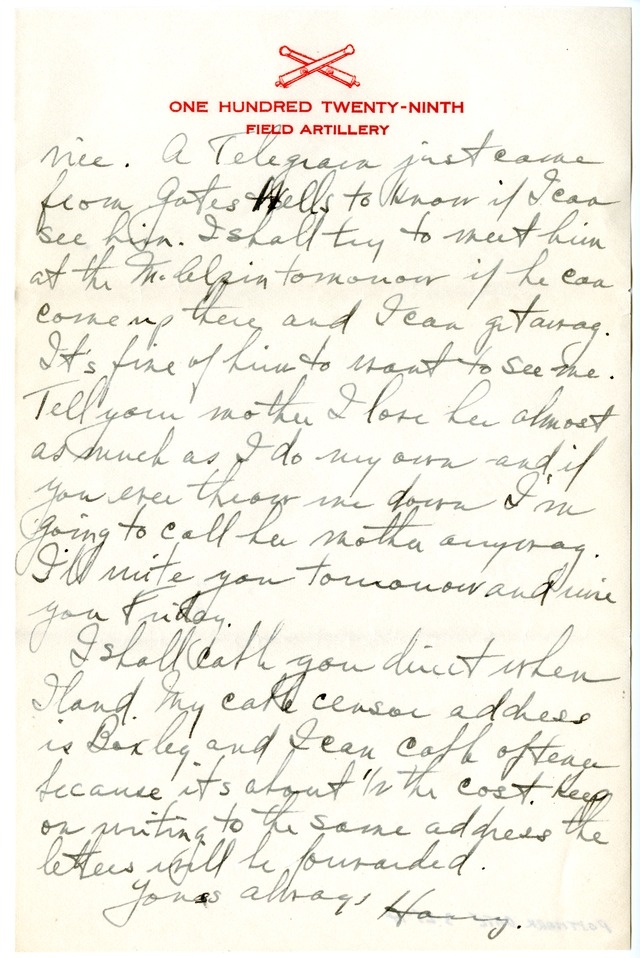 ONE HUNDRED TWENTY-NINTH
FIELD ARTILLERY
nice. A Telegram just came
from Gates Wells to know if I can
see him. I shall try to meet him
at the McAlpin tomorrow if he can
come up there and I can get away.
It's fine of him to want to see me.
Tell your mother I love her almost
as much as I do my own and if
you ever throw me down I'm
going to call her mother anyway.
I'll write you tomorrow and wire
you Friday.
I shall cable you direct when
I land. My cable censor address
is Boxley and I can cable oftener
because it's about ½ the cost. Keep
on writing to the same address the
letters will be forwarded.
Yours always Harry.